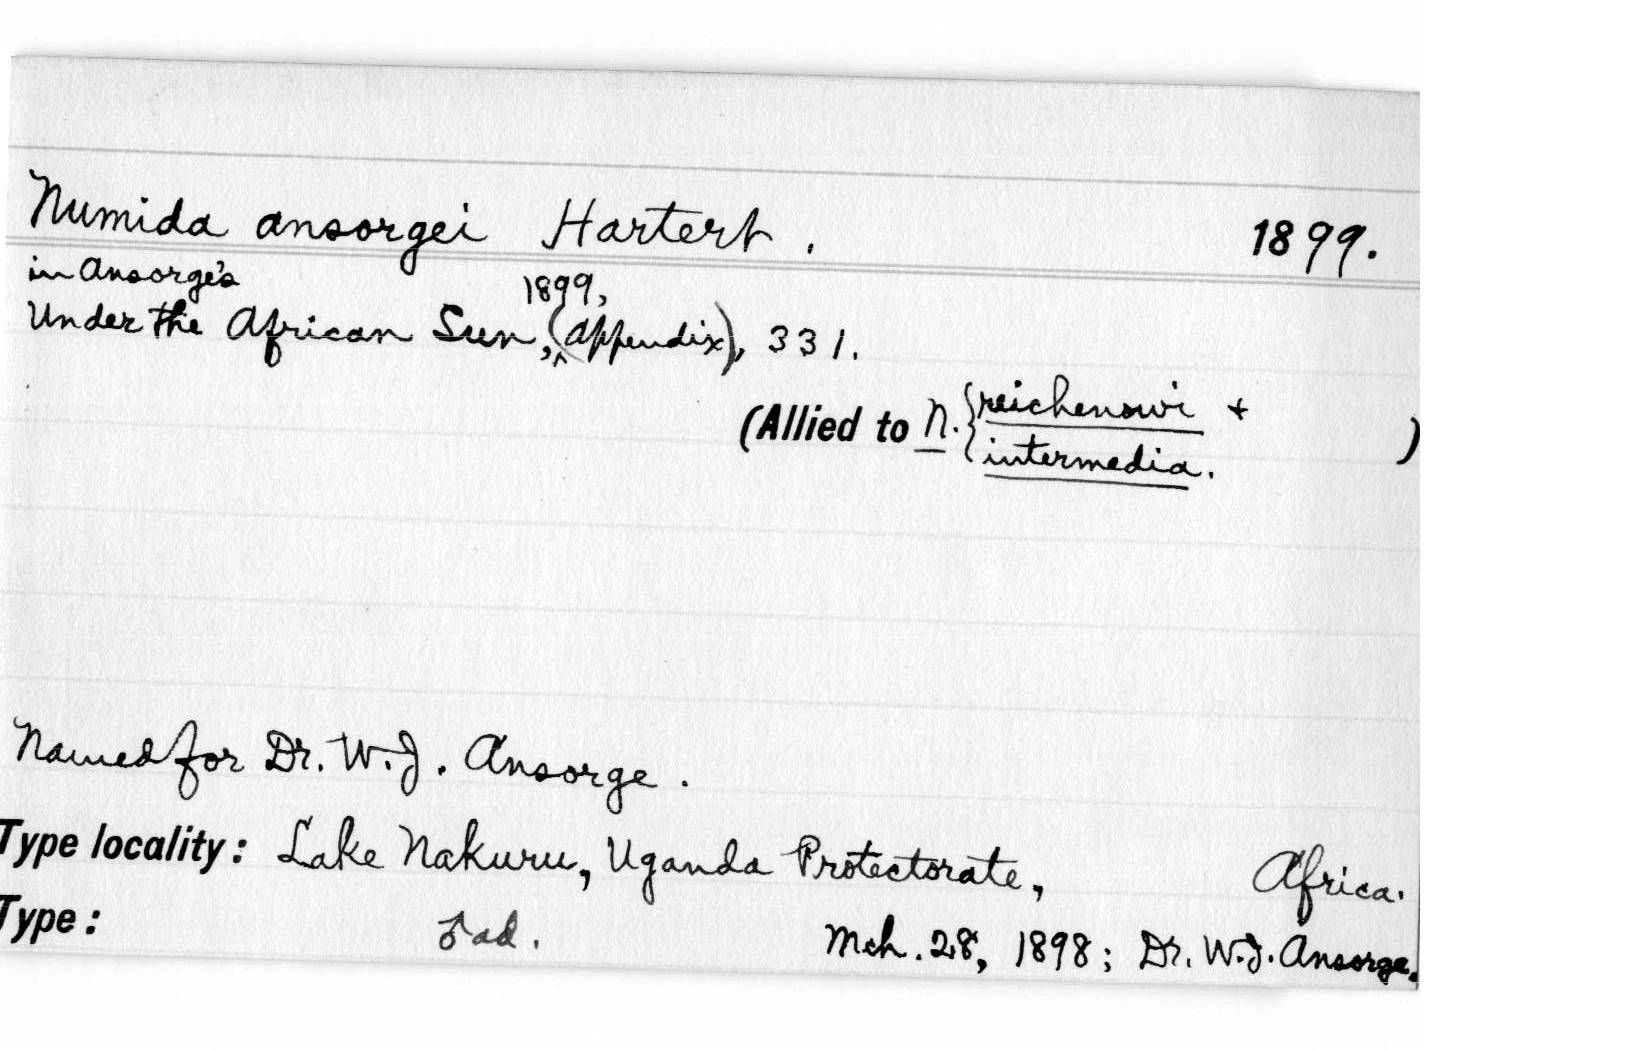 Numida ansorgei Hartert. 1899.
in Ansorge's
Under the African Sun, 1899, (Appendix), 331.
(Allied to N. {reichenowi +
intermedia. )
Named for Dr. W. J. Ansorge.
Type locality: Lake Nakuru, Uganda Protectorate, Africa.
Type: ♂ ad. Mch. 28, 1898; Dr. W. J. Ansorge.